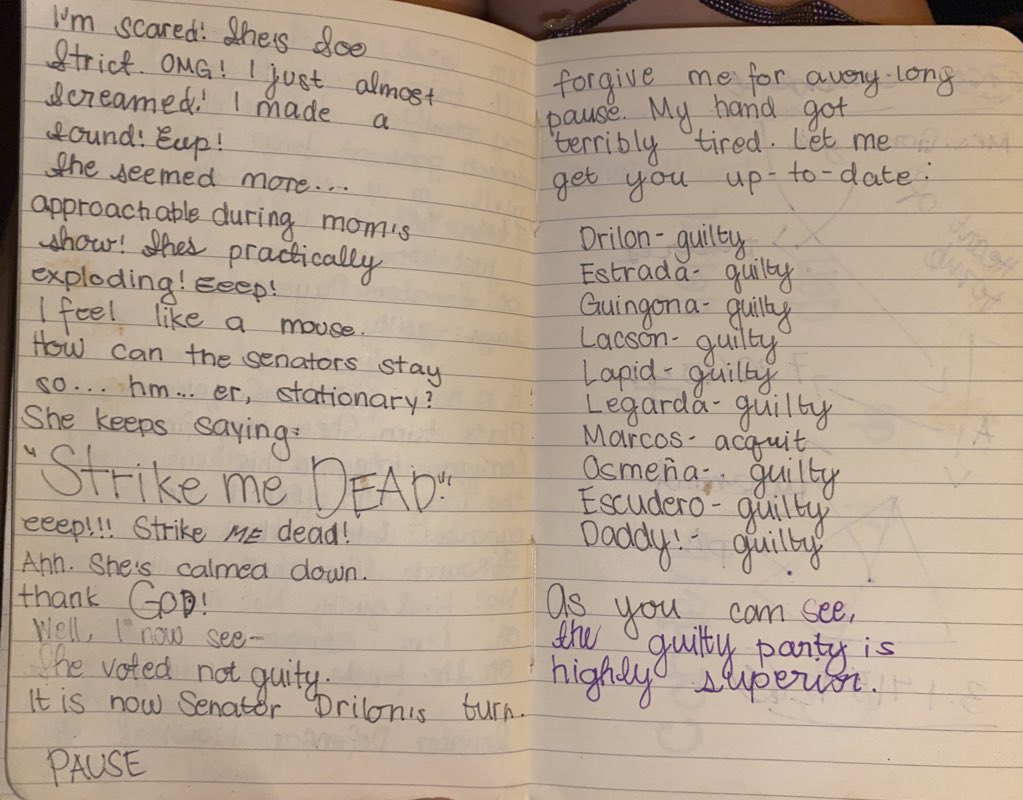 I'm scared! She's Soo
Strict. OMG! I just almost
screamed! I made a
sound! Eep!
She seemed more...
approachable during mom's
show! She's practically
exploding! Eeep!
I feel like a mouse.
How can the senators stay
so... hm... er, stationary?
She keeps saying:
"Strike me DEAD!"
eeep!!! Strike ME dead!
Ahh. She's calmed down.
thank GOD!
Well, I now see-
She voted not guity.
It is now Senator Drilon's turn.
PAUSE
forgive me for a very-long
pause. My hand got
terribly tired. Let me
get you up-to-date:
Drilon- guilty
Estrada- guilty
Guingona- guilty
Lacson- guilty
Lapid- guilty
Legarda- guilty
Marcos- acquit
Osmeña- guilty
Escudero- guilty
Daddy!- guilty
As you can see,
the guilty party is
highly superior.